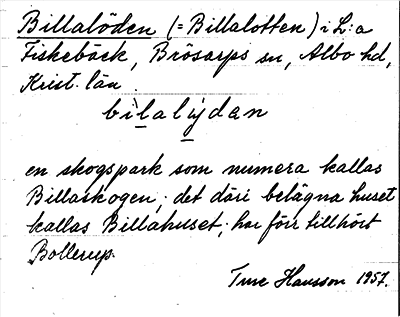 Billalöden (= Billalotten) i L:a
Fiskebäck, Brösarps sn, Albo hd,
Krist. län.
bìlalýdan
en skogspark som numera kallas
Billaskogen; det däri belägna huset
kallas Billahuset; har förr tillhört
Bollerup.
Ture Hansson 1957.